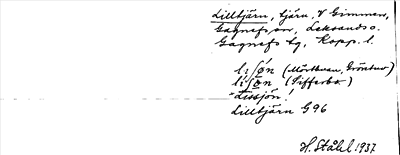 Lilltjärn, tjärn, V Gimmen,
Gagnefs sn, Leksands o.
Gagnefs tg, Kopp. l.
l̀i:ʃøn (Mörtkvarn, Gröntuv)
l̀i:ʃøn (Sifferbo)
"Lissjön!
Lilltjärn G96
H. Ståhl 1937